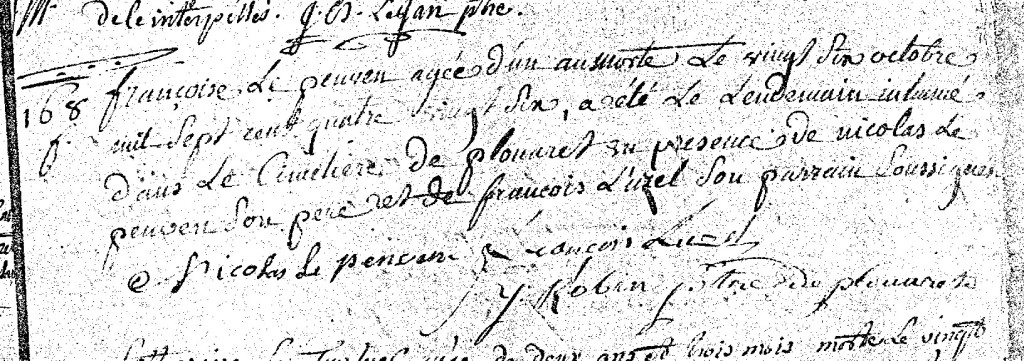 de le interpellés. J. B. Lejan ptre.
168 françoise Le peuven agée d'un an morte Le vingt Six octobre
f. mil Sept cent quatre vingt Six, a été Le Lendemain inhumé
dans Le Cimetière de plouaret en presence de nicolas Le
peuven Son pere et de françois Luzel Son parrain Soussignes
Nicolas Le peuven françois Luzel
Y Robin ptre de plouaret
agée de deux ans et trois mois morte Le vingt